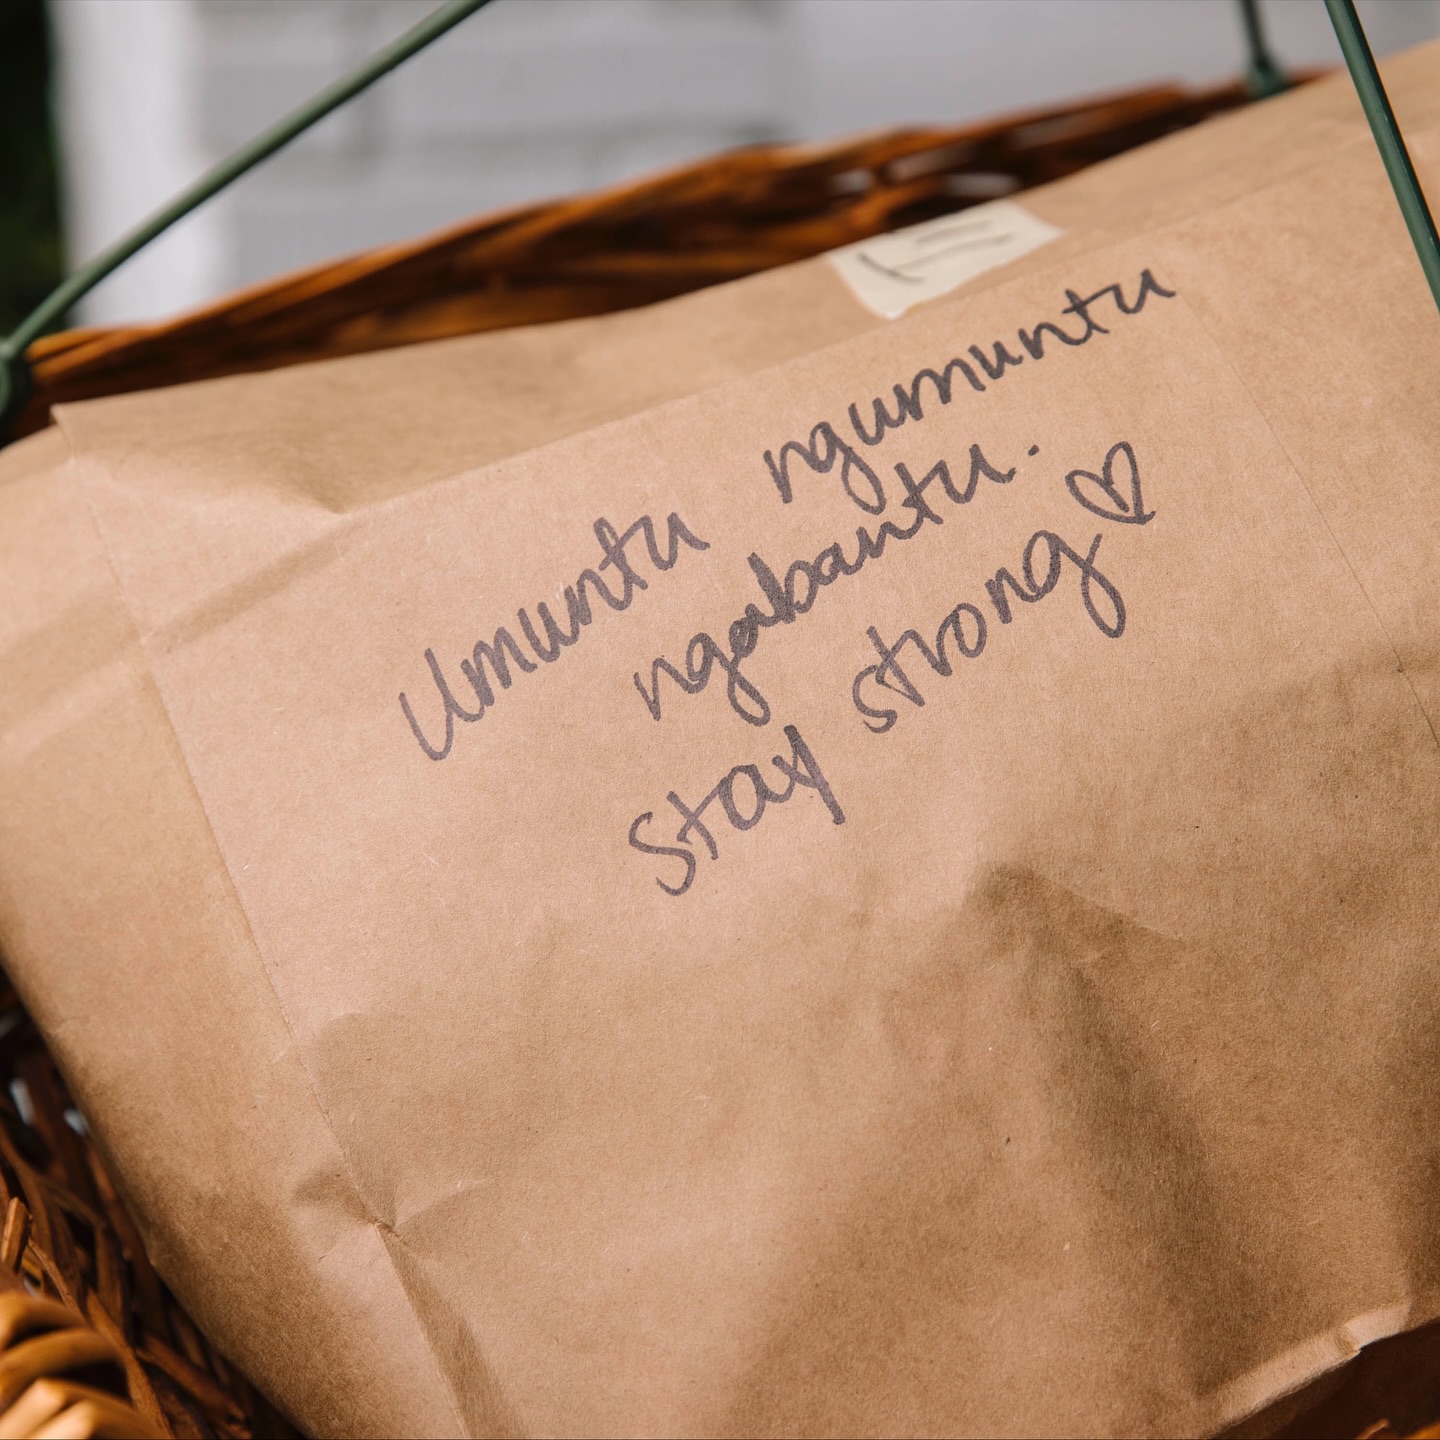 Umuntu ngumuntu
ngabantu.
stay strong ♡